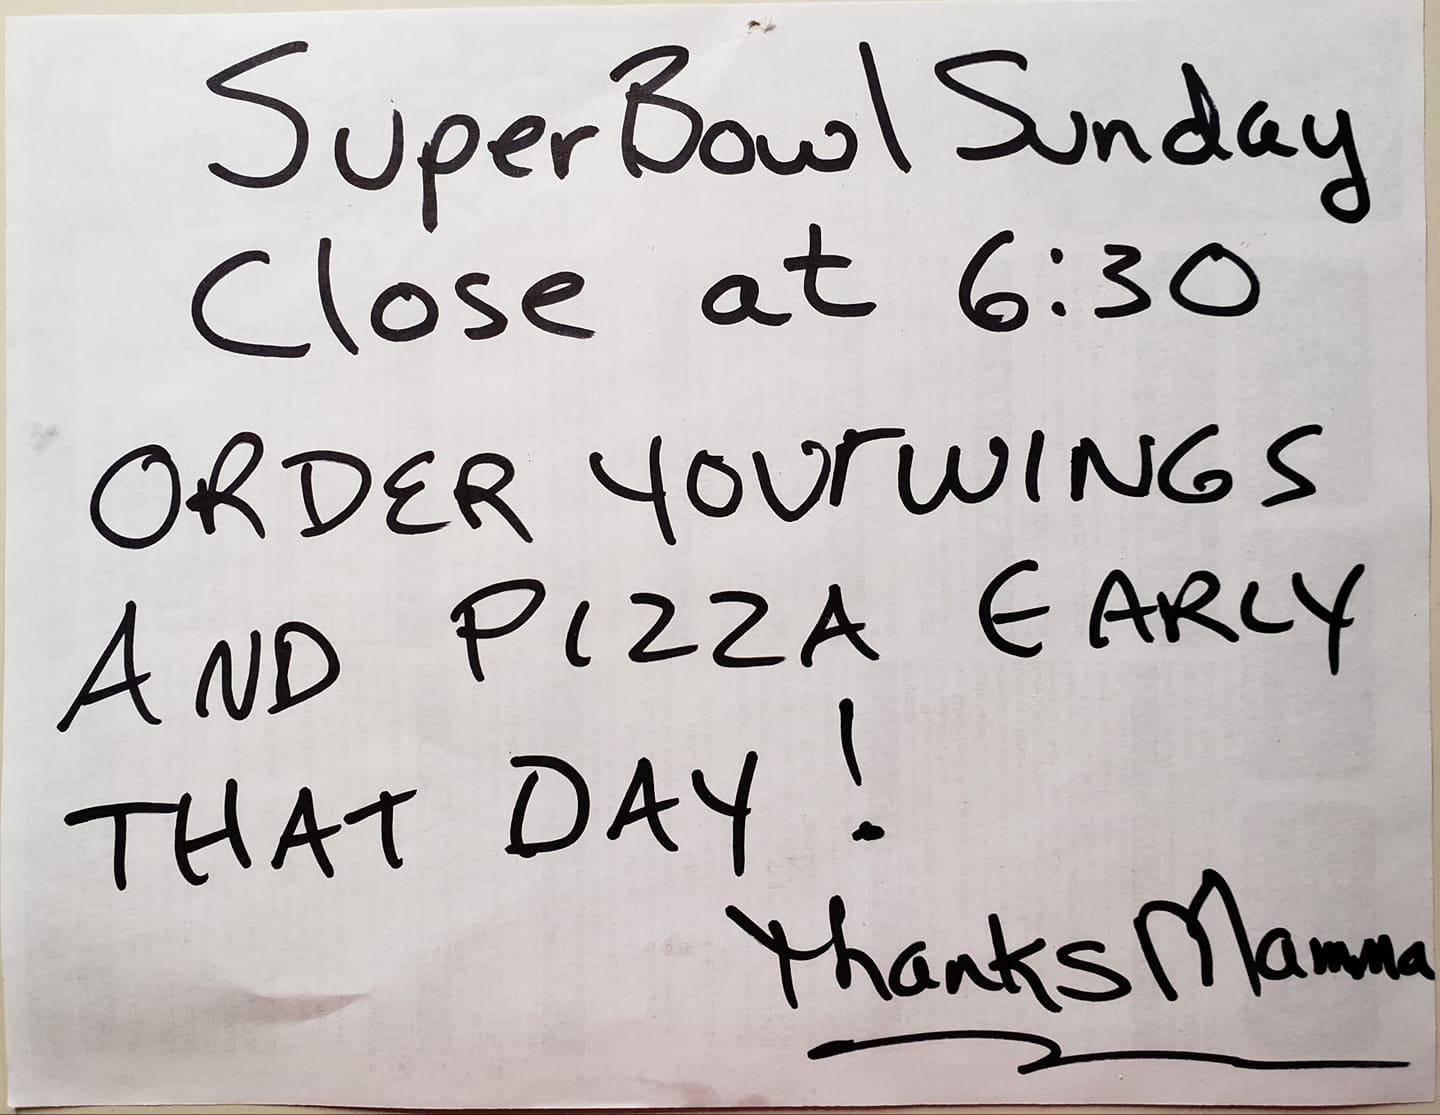 Super Bowl Sunday
Close at 6:30
ORDER YOUr WINGS
AND PIZZA EARLY
THAT DAY!
Thanks Mamma